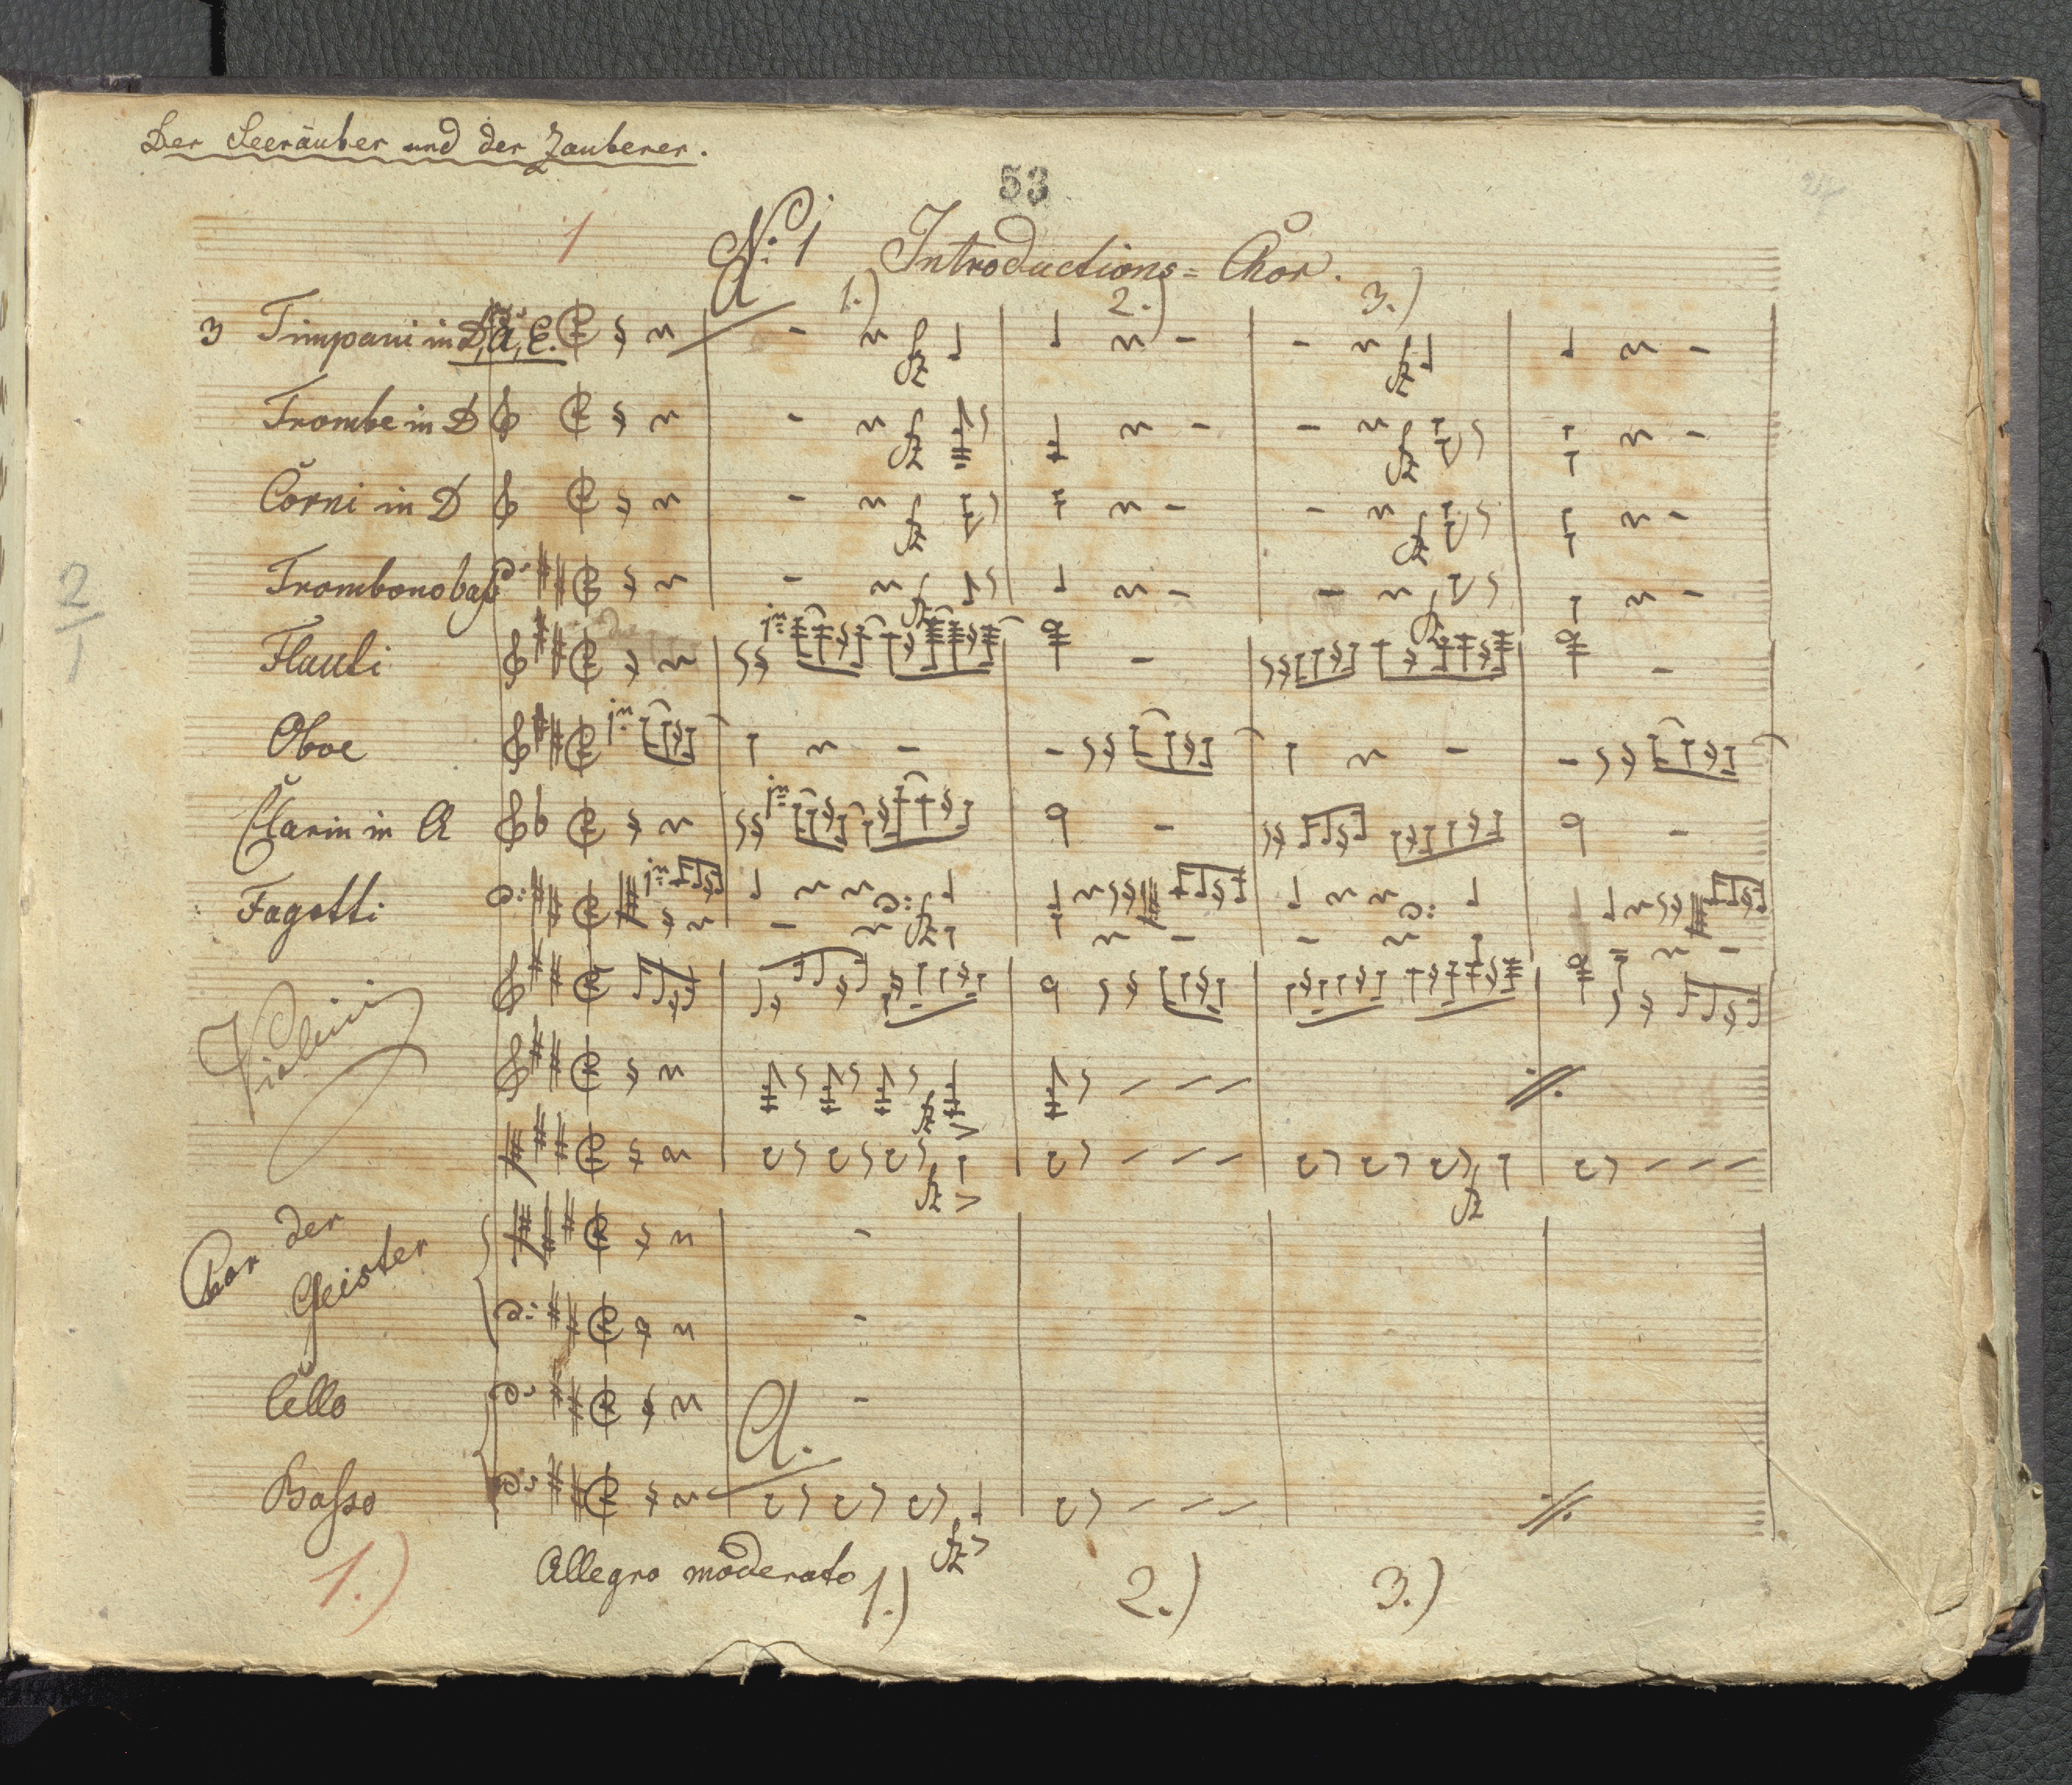 Der Seeräuber und der Zauberer.
53
1
No: 1 Introductions = Chor.
A
1.) 2.) 3.)
3 Timpani in D, A, E.
fz fz
Trombe in D
fz fz
Corni in D
fz fz
Trombono baſs
fz fz
Flauti
1mo
Oboe
1mo
Clarin in A
1mo
2
1
Fagotti
1mo
fz
Violini
fz
fz fz
Chor der
Geister
Cello
A.
Baſso
fz
1.) Allegro moderato 1.) 2.) 3.)